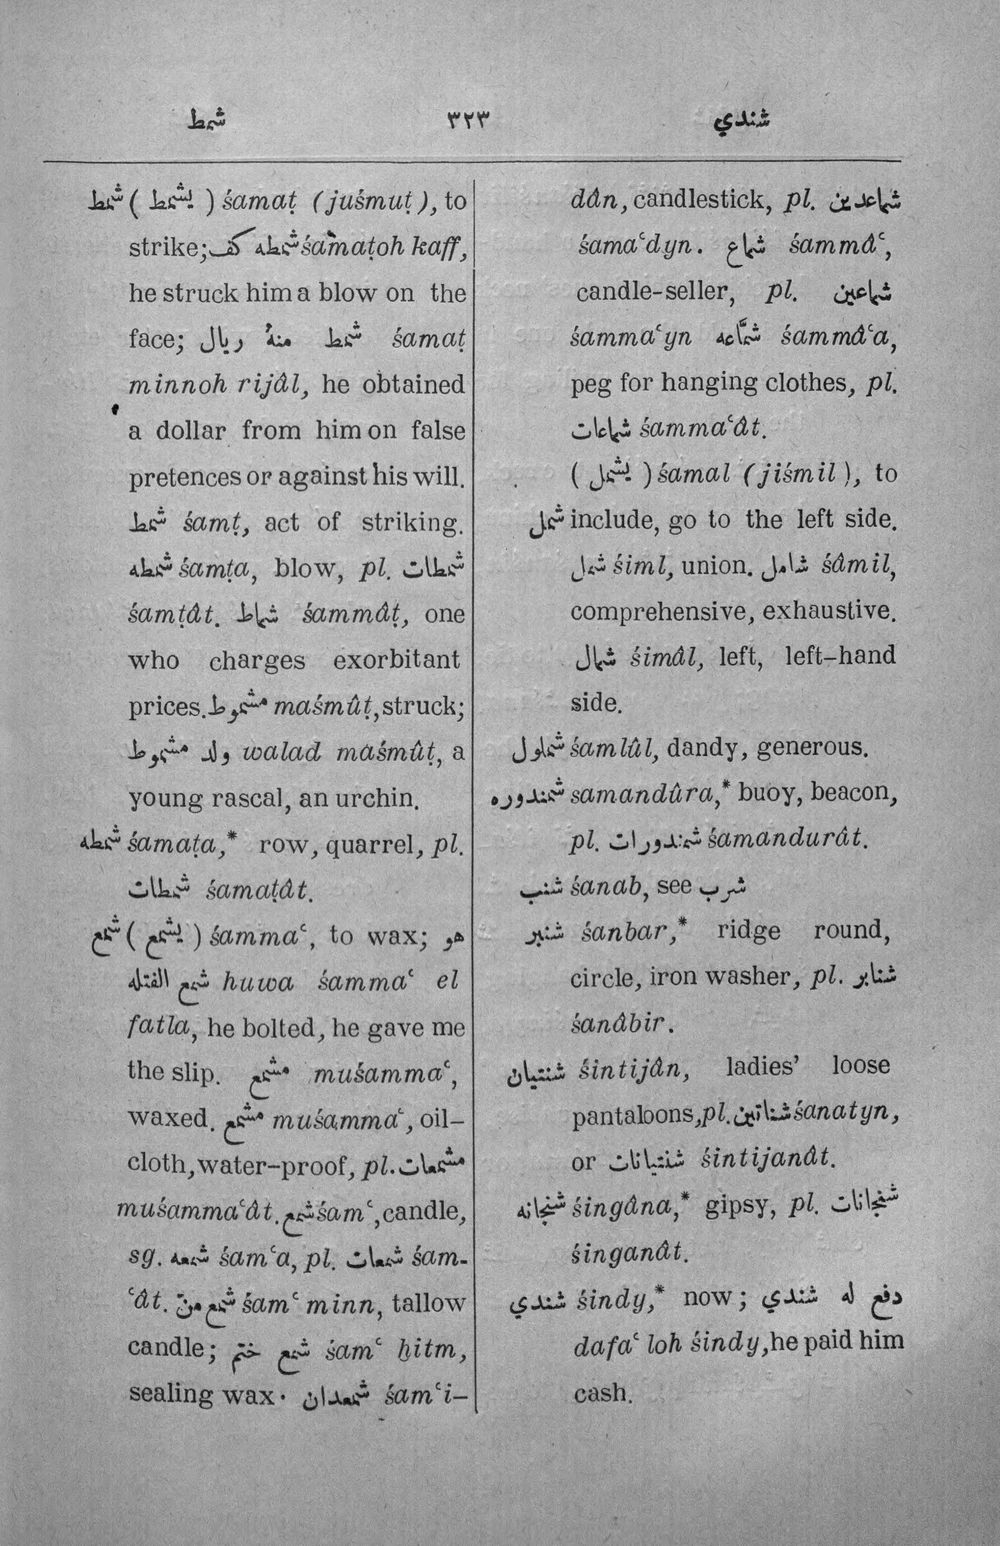 شمط ٣٢٣ شندي
شمط ( يشمط ) śamaṭ (juśmuṭ), to
strike; شمطه كف śamaṭoh kaff,
he struck him a blow on the
face; شمط منهُ ريال śamaṭ
minnoh rijâl, he obtained
a dollar from him on false
pretences or against his will.
شمط śamṭ, act of striking.
شمطه śamṭa, blow, pl. شمطات
śamṭât. شماط śammâṭ, one
who charges exorbitant
prices. مشموط maśmûṭ, struck;
ولد مشموط walad maśmûṭ, a
young rascal, an urchin.
شمطه śamaṭa,* row, quarrel, pl.
شمطات śamaṭât.
شمع ( يشمع ) śammaʿ, to wax; هو
شمع الفتله huwa śammaʿ el
fatla, he bolted, he gave me
the slip. مشمع muśammaʿ,
waxed. مشمع muśammaʿ, oil-
cloth, water-proof, pl. مشمعات
muśammaʿât. شمع śamʿ, candle,
sg. شمعه śamʿa, pl. شمعات śam-
ʿât. شمع منّ śamʿ minn, tallow
candle; شمع ختم śamʿ ḫitm,
sealing wax. شمعدان śamʿi-
dân, candlestick, pl. شماعدين
śamaʿdyn. شماع śammâʿ,
candle-seller, pl. شماعين
śammaʿyn شمَّاعه śammâʿa,
peg for hanging clothes, pl.
شماعات śammaʿât.
( يشمل ) śamal (jiśmil), to
شمل include, go to the left side.
شمل śiml, union. شامل śâmil,
comprehensive, exhaustive.
شمال śimâl, left, left-hand
side.
شملول śamlûl, dandy, generous.
شمندوره samandûra,* buoy, beacon,
pl. شمندورات śamandurât.
شنب śanab, see شرب
شنبر śanbar,* ridge round,
circle, iron washer, pl. شنابر
śanâbir.
شنتيان śintijân, ladies’ loose
pantaloons, pl. شناتين śanatyn,
or شنتيانات śintijanât.
شنجانه śingâna,* gipsy, pl. شنجانات
śinganât.
شندي śindy,* now; دفع له شندي
dafaʿ loh śindy, he paid him
cash.